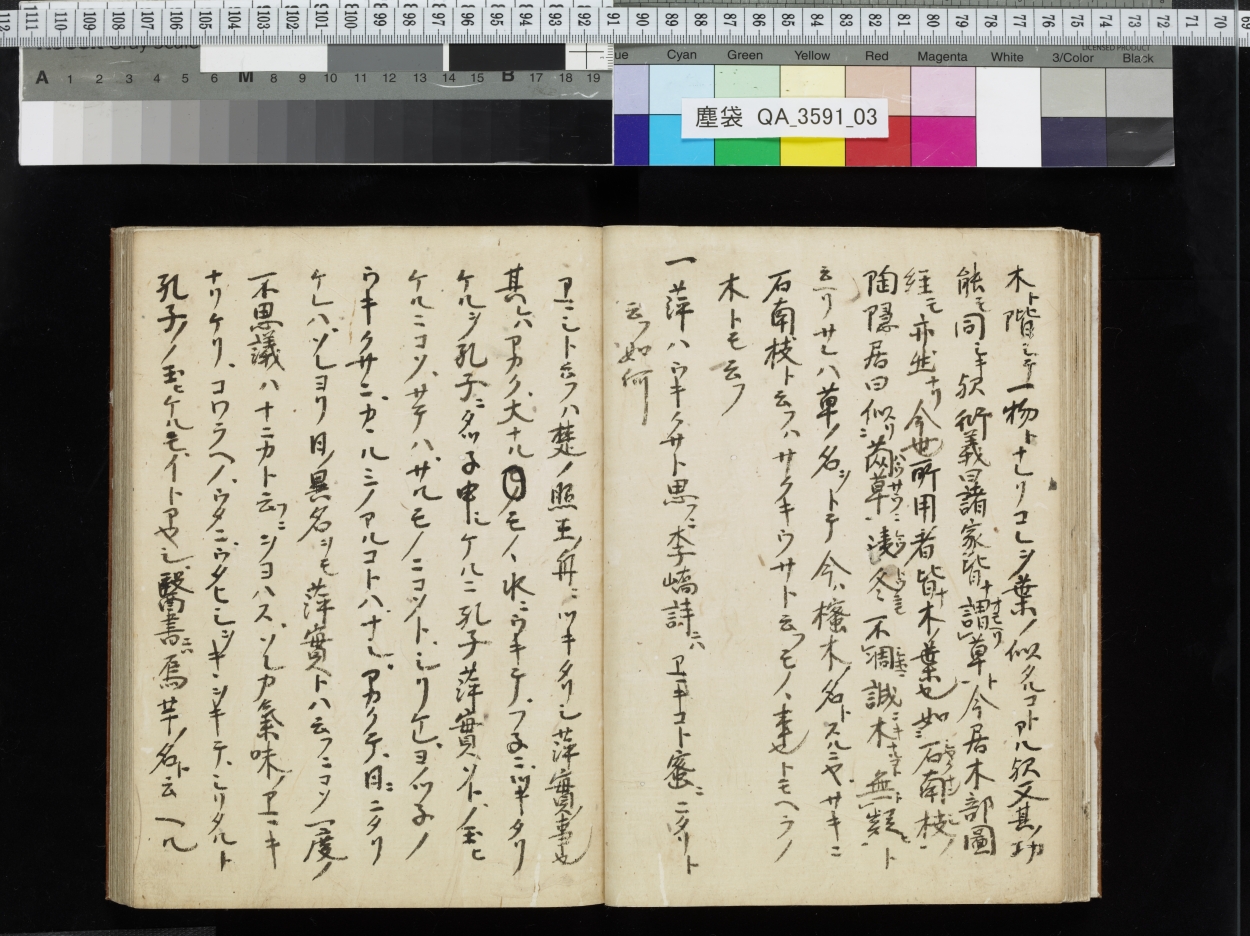 112 111 110 109 108 107 106 105 104 103 102 101 100 99 98 97 96 95 94 93 92 91 90 89 88 87 86 85 84 83 82 81 80 79 78 77 76 75 74 73 72 71 70 69
Cyan Green Yellow Red Magenta White 3/Color Black
A 1 2 3 4 5 6 M 8 9 10 11 12 13 14 15 B 17 18 19
塵袋 QA_3591_03
木ト階シテ一物トナレリコレシ葉ノ似タルコトアル歟又其ノ功
能モ同シキ歟衍義曰諸家皆謂草ト今居木部圖
経モ亦然ナリ今世所用者皆木ノ葉也如石南枝ノ
陶隠居曰似茵草凌冬不凋誠木無類ト
云リサレハ草ノ名シトテ今ハ樒木ノ名トスルニヤサキニ
石南枝ト云フハサクキウサト云フモノヽ事也トモヘラノ
木トモ云フ
一萍ハウキクサト思フニ李嶠詩ニハアキコト蜜ニニタリト
云フ如何
アマシト云フハ楚ノ照王ノ舟ニツキタリシ萍實事也
其レハアカク大ナルモノヽ水ニウキテフネニツキタリ
ケルシ孔子ニタツネ申シケルニ孔子萍實ソトノ玉ヒ
ケルニコソサテハサルモノニコソトシリケレヨノツネノ
ウキクサニカヽルミノアルコトハナシアカクテ日ニニタリ
ケレハソレヨリ日ノ異名シモ萍實トハ云フニコソ一度ノ
不思議ハナニカト云フニシヨハスソレカ氣味ノアマキ
ナリケリコワラヘノウタニウタヒシシキヽシキテシリタルト
孔子ノ玉ヒケルモイトアヤシ醫書ニハ烏芋ノ名ト云ヘル